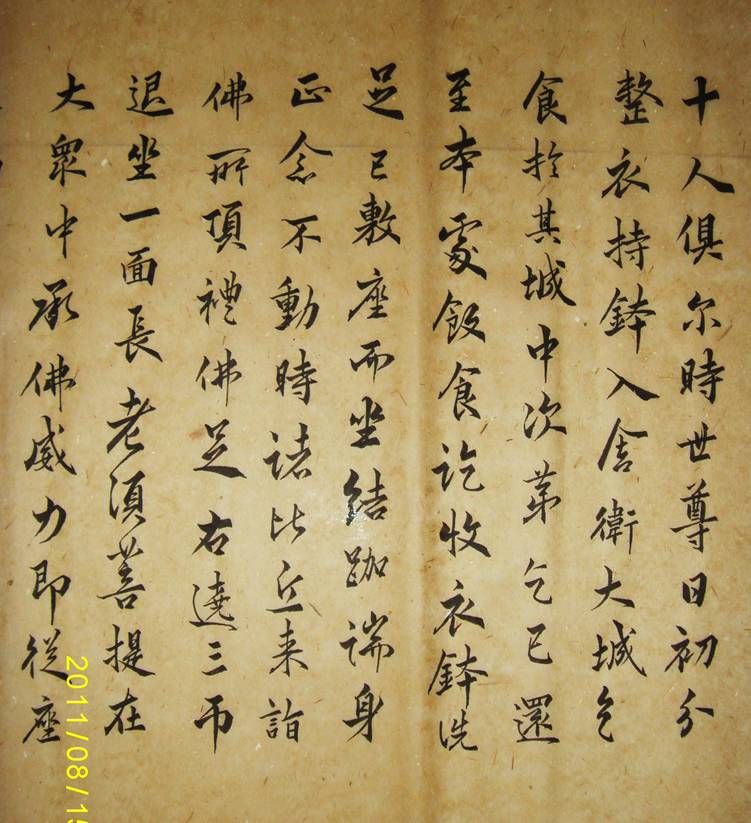 十人俱尔時世尊日初分
整衣持鉢入舍衛大城乞
食於其城中次第乞已還
至本處飯食訖收衣鉢洗
足已敷座而坐結跏端身
正念不動時諸比丘来詣
佛所頂禮佛足右遶三帀
退坐一面長老須菩提在
大眾中承佛威力即從座
2011/08/15